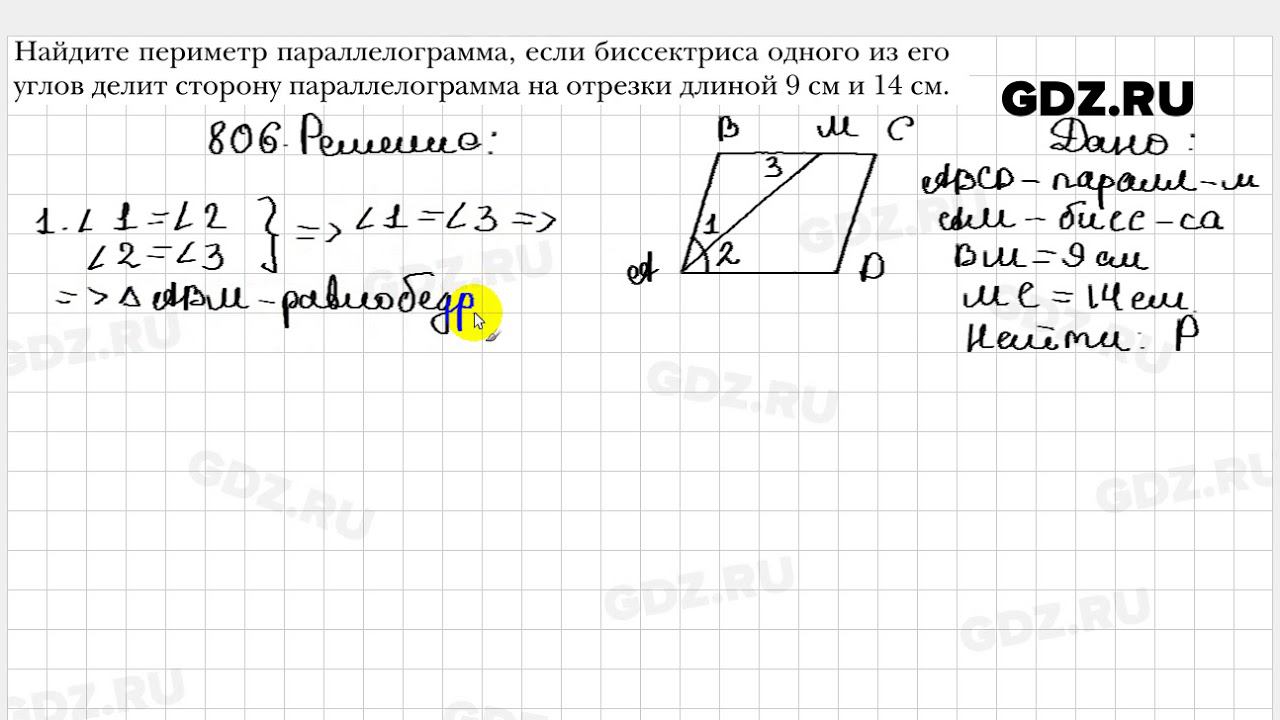 Найдите периметр параллелограмма, если биссектриса одного из его
углов делит сторону параллелограмма на отрезки длиной 9 см и 14 см.
GDZ.RU
806. Решение:
B M C
3
1
2
A D
Дано:
ABCD - паралл-м
AM - бисс-са
BM = 9 см
MC = 14 см
Найти: P
1. ∠1 = ∠2
∠2 = ∠3 } => ∠1 = ∠3 =>
=> △ ABM - равнобедр
GDZ.RU
GDZ.RU
GDZ.RU
GDZ.RU
GDZ.RU
GDZ.RU
GDZ.RU
GDZ.RU
GDZ.RU
GDZ.RU
GDZ.RU